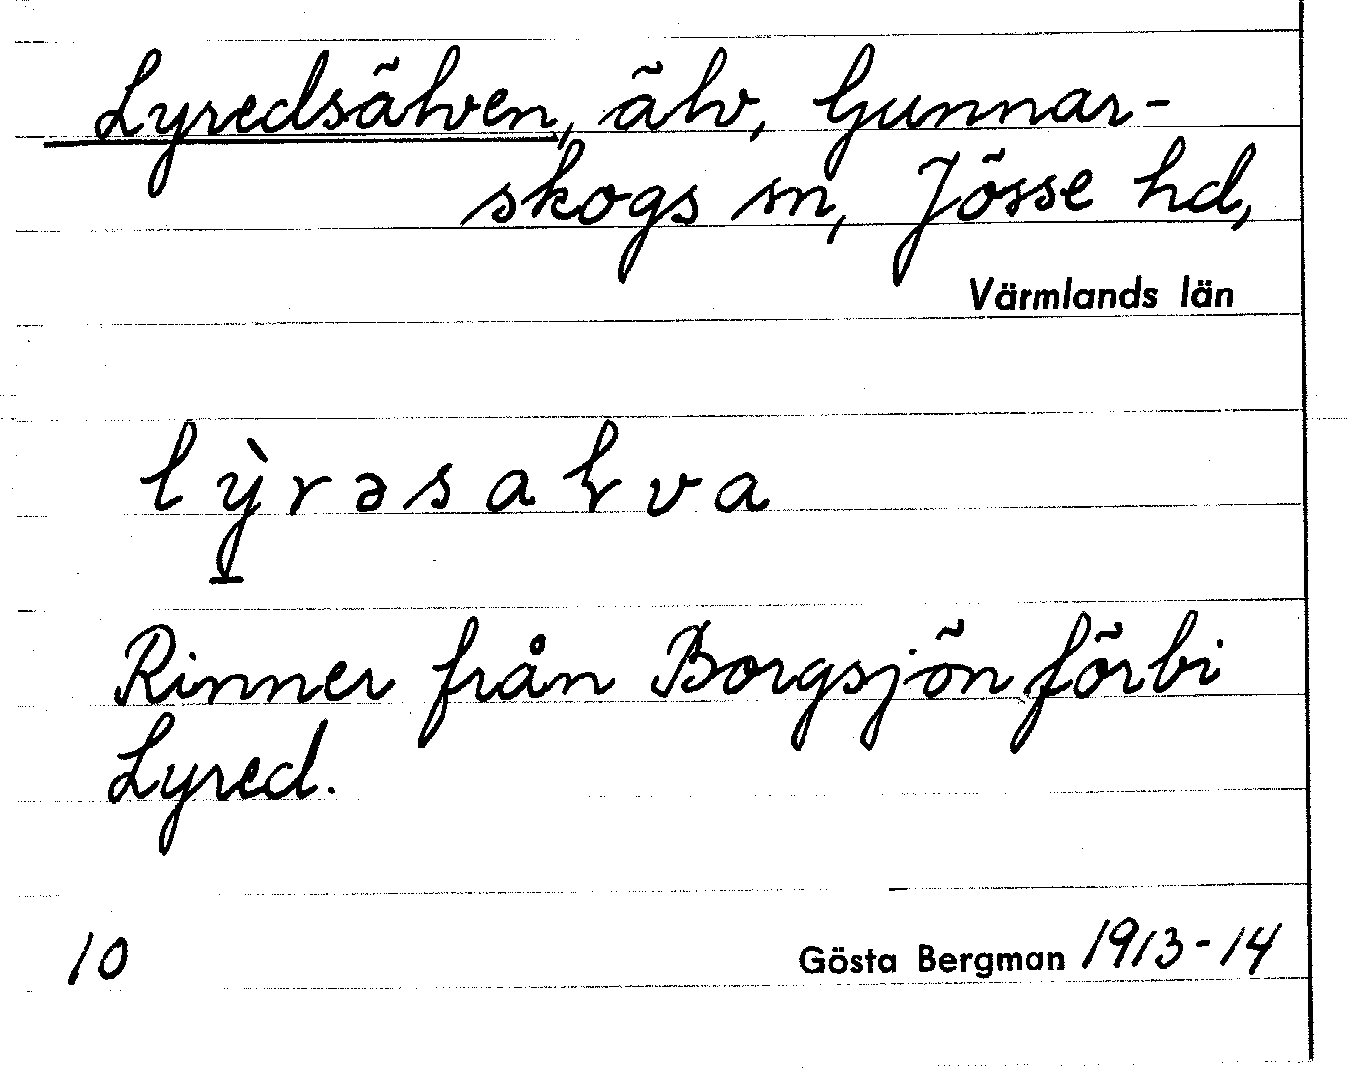 Lyredsälven, älv, Gunnar-
skogs sn, Jösse hd,
Värmlands län
lỳrəsaɫva
Rinner från Borgsjön förbi
Lyred.
10 Gösta Bergman 1913-14